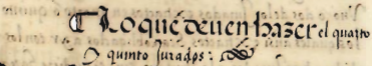 ¶ Lo que deuen hazer el quarto
O quinto Jurados: